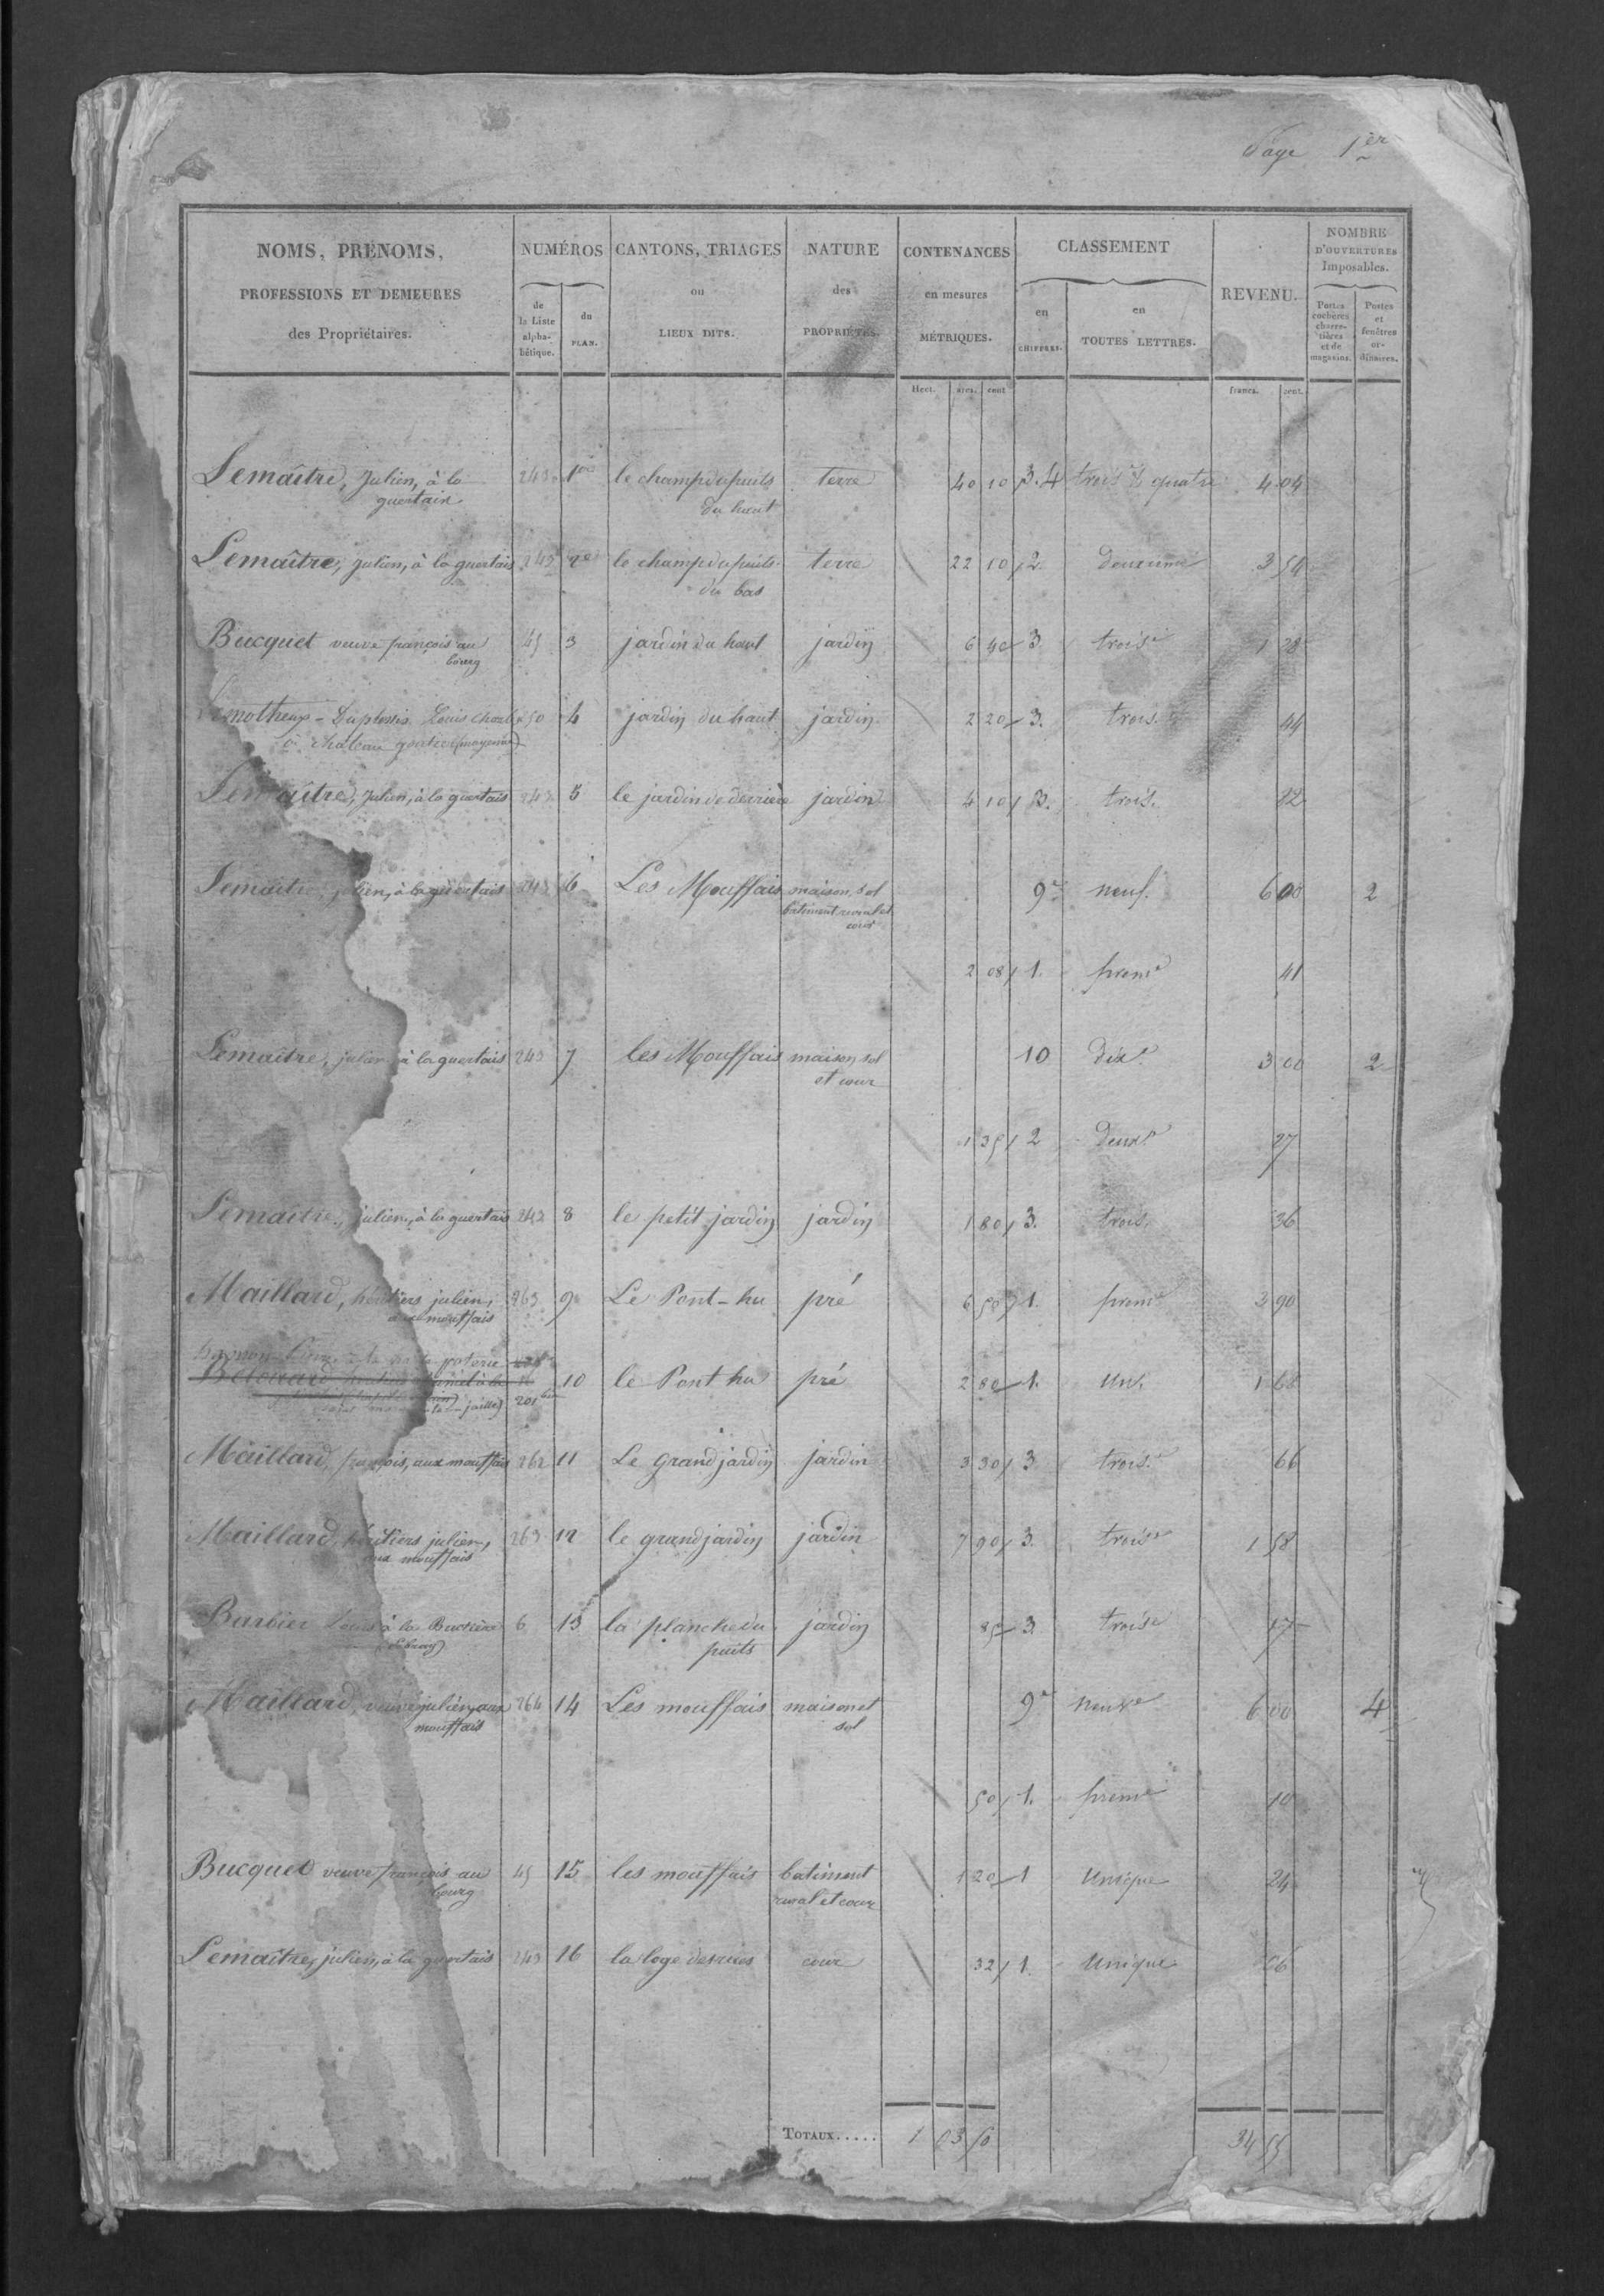 Page 1er
NOMS, PRÉNOMS, PROFESSIONS ET DEMEURES des Propriétaires.
NUMÉROS de la Liste alphabétique. du PLAN.
CANTONS, TRIAGES ou LIEUX DITS.
NATURE des PROPRIÉTÉS.
CONTENANCES en mesures MÉTRIQUES.
CLASSEMENT en CHIFFRES. en TOUTES LETTRES.
REVENU.
NOMBRE D'OUVERTURES Imposables.
Portes cochères charretières et de magasins. Portes et fenêtres ordinaires.
Hect. ares. cent francs. cent.
Lemaître, Julien, à la 243 1er le champ du puits terre 40 10 3.4 trois & quatre 4 04
guertais du haut
Lemaître, julien, à la guertais 243 2e le champ du puits terre 22 10 2. deuxieme 3 54
du bas
Bucquet veuve françois au 45 3 jardin du haut jardin 6 40 3. trois 1 28
bourg
Duplessis Louis 250 4 jardin du haut jardin 2 20 3. trois. 44
à château gontier (mayenne)
Lemaître, Julien, à la guertais 243 5 le jardin de derrière jardin 4 10 3. trois. 82
Lemaître, julien, à la guertais 243 6 Les Mouffais maison, sol 9e neuf. 6 00 2
batiment rural et
cour
2 08 1. prem 41
Lemaître, julien à la guertais 243 7 les Mouffais maison sol 10 dix 3 00 2
et cour
1 35 2 deux 27
Lemaître, julien, à la guertais 243 8 le petit jardin jardin 1 80 3. trois. 36
Maillard, héritiers julien, 263 9 Le Pont-hu pré 6 50 1. prem 3 90
aux mouffais
10 le Pont hu pré 2 80 1. un. 1 68
201 bis
Maillard, françois, aux mouffais 262 11 Le grand jardin jardin 3 30 3 trois. 66
Maillard, héritiers julien, 263 12 le grand jardin jardin 7 90 3. trois 1 58
aux mouffais
Barbier Louis à la 6 13 la planche du jardin 85 3. trois 17
puits
Maillard, veuve julien, aux 264 14 Les mouffais maison et 9e neuv 6 00 4
mouffais sol
50 1. prem 10
Bucquet veuve françois au 45 15 les mouffais batiment 1 20 1 Unique 24
bourg rural et cour
Lemaître, julien, à la guertais 243 16 la loge cour 32 1. Unique 06
TOTAUX..... 1 03 50 34 55